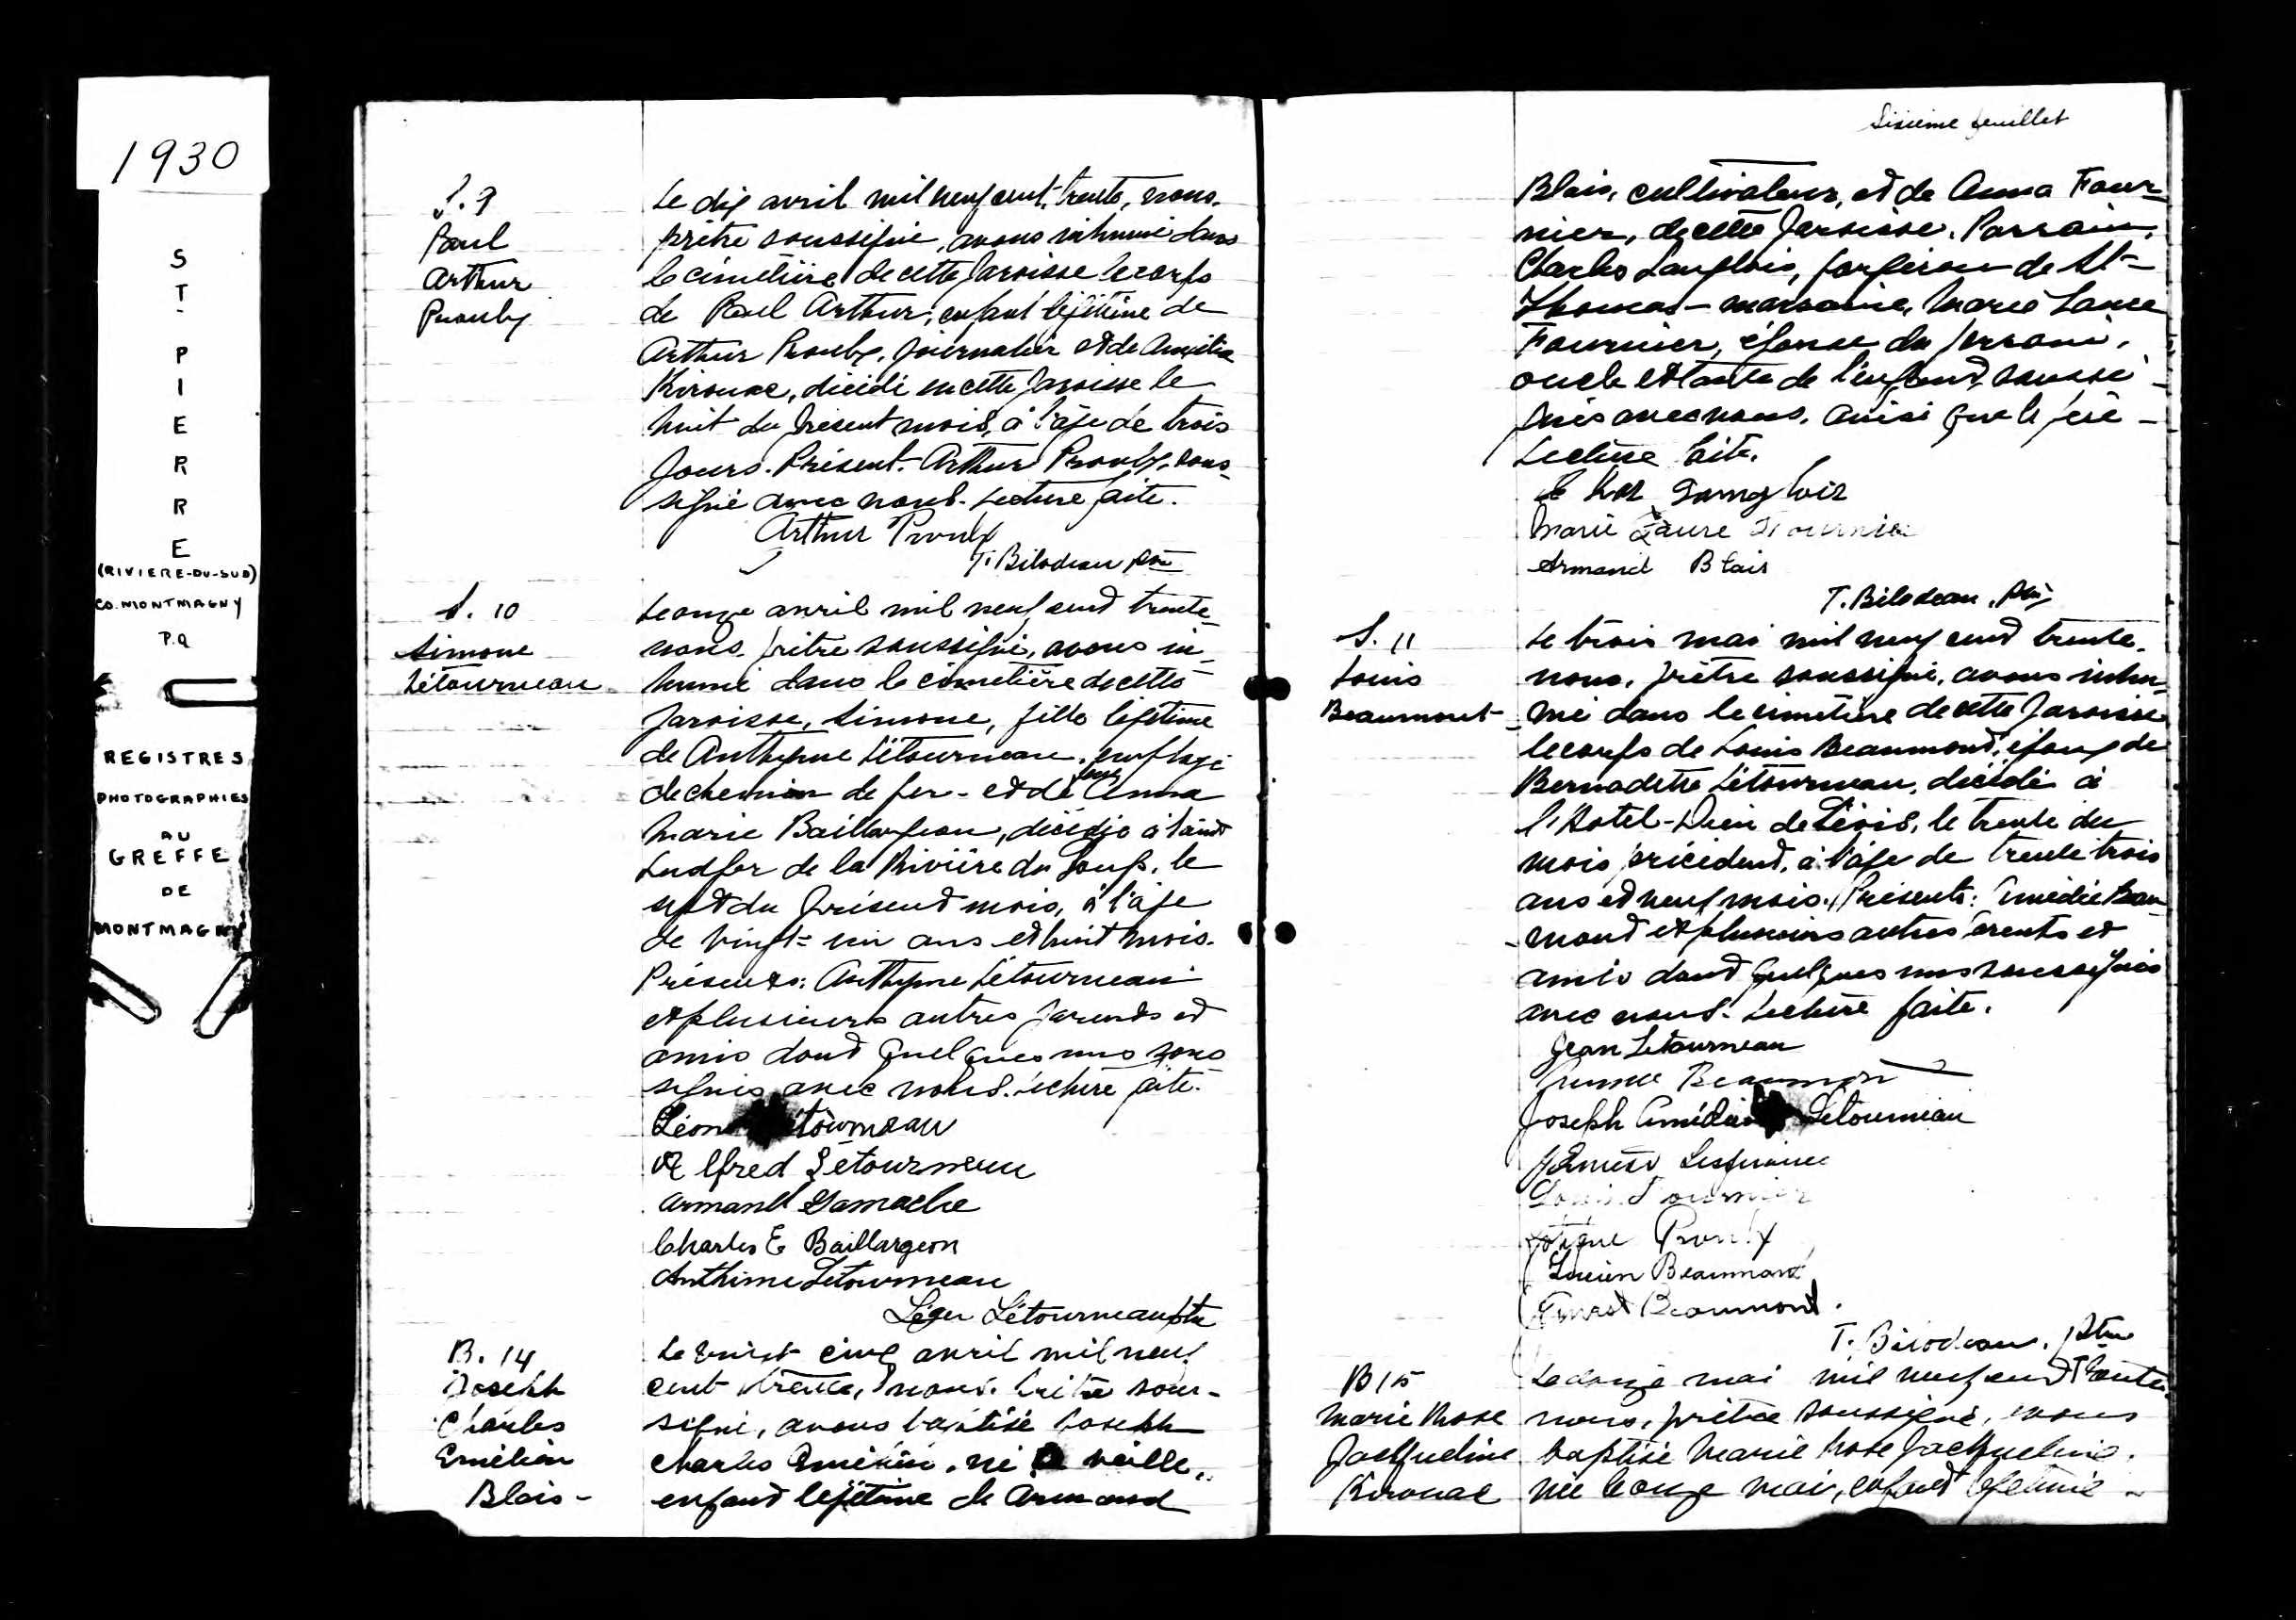 1930
ST-PIERRE
(RIVIERE-DU-SUD)
CO. MONTMAGNY
P.Q
REGISTRES
PHOTOGRAPHIES
AU
GREFFE
DE
MONTMAGNY
S. 9
Paul
Arthur
Proulx
Le dix avril mil neuf cent trente, nous,
prêtre soussigné, avons inhumé dans
le cimetière de cette paroisse le corps
de Paul Arthur, enfant légitime de
Arthur Proulx, journalier et de
Kirouac, décédé en cette paroisse le
huit du présent mois, à l'âge de trois
jours. Présent. Arthur Proulx, sous-
signé avec nous. Lecture faite.
Arthur Proulx
T. Bilodeau ptre
S. 10
Simone
Létourneau
Le onze avril mil neuf cent trente,
nous, prêtre soussigné, avons in-
humé dans le cimetière de cette
paroisse, Simone, fille légitime
de Anthyme Létourneau, employé
de chemin de fer - et de feue Anna
Marie Baillargeon, décédée à Saint
Ludger de la Rivière du Loup, le
sept du présent mois, à l'âge
de vingt-un ans et huit mois.
Présents: Anthyme Létourneau
et plusieurs autres parents et
amis dont quelques uns sous
signés avec nous. Lecture faite.
Létourneau
Alfred Létourneau
Armand Gamache
Charles E Baillargeon
Anthime Letourneau
Léger Létourneau ptre
B. 14
Joseph
Charles
Emilien
Blais -
Le vingt cinq avril mil neuf
cent trente, nous, prêtre sous-
signé, avons baptisé Joseph
Charles Emilien, né la veille,
enfant légitime de Armand
Sixième feuillet
Blais, cultivateur, et de Anna Four-
nier, de cette paroisse. Parrain,
Charles Langlois, forgeron de St-
Thomas - marraine, Marie Laure
Fournier, épouse du parrain,
oncle et tante de l'enfant, soussi-
gnés avec nous, ainsi que le père -
Lecture faite.
Langlois
Marie Laure Fournier
Armand Blais
T. Bilodeau, ptre
S. 11
Louis
Beaumont
Le trois mai mil neuf cent trente,
nous, prêtre soussigné, avons inhu-
mé dans le cimetière de cette paroisse
le corps de Louis Beaumont, époux de
Bernadette Létourneau, décédé à
l'Hotel-Dieu de Lévis, le trente du
mois précédent, à l'âge de trente trois
ans et neuf mois. Présents: Amédée Beau-
mont et plusieurs autres parents et
amis dont quelques uns soussignés
avec nous. Lecture faite.
Jean Letourneau
Beaumont
Joseph Amédée Létourneau
Louis Fournier
Proulx
Lucien Beaumont
Ernest Beaumont.
T. Bilodeau, Ptre
B 15
Marie Rose
Jacqueline
Kirouac
Le douze mai mil neuf cent trente,
nous, prêtre soussigné, avons
baptisé Marie Rose Jacqueline,
née le onze mai, enfant légitime